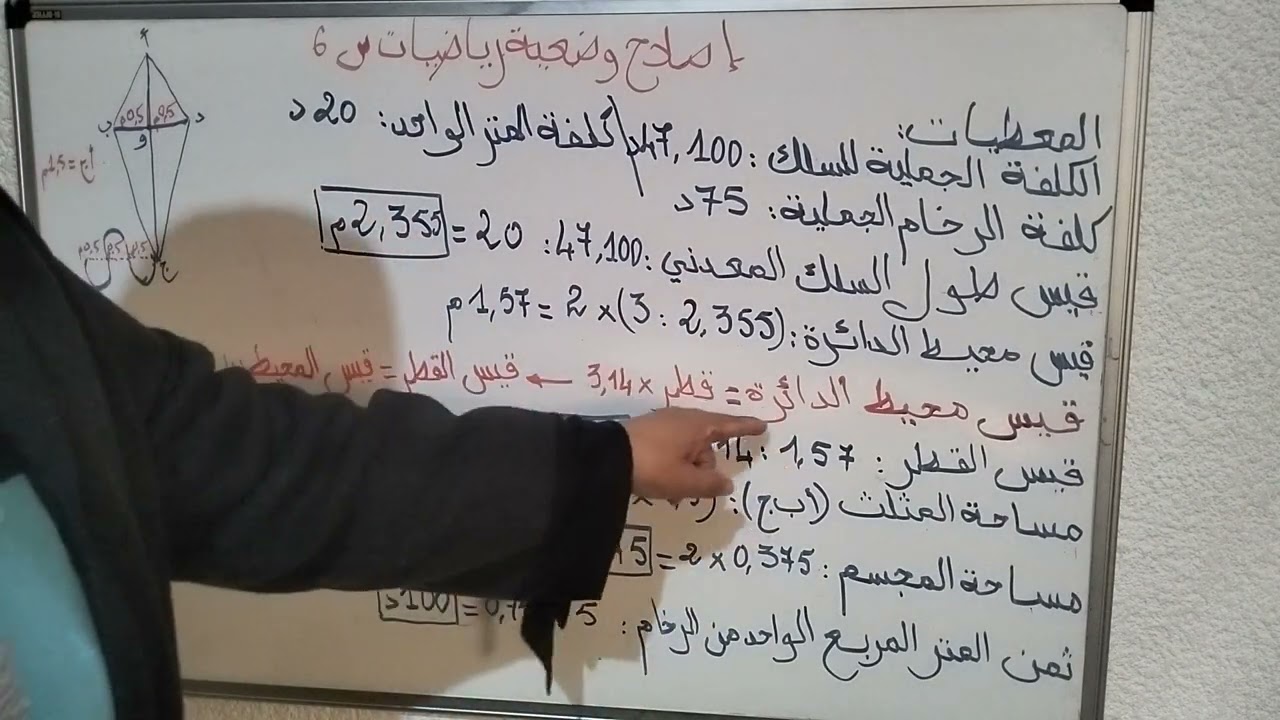 إصلاح وضعية رياضيات س 6
المعطيات:
الكلفة الجملية للسلك: 47,100د / كلفة المتر الواحد: 20د
كلفة الرخام الجملية: 75د
قيس طول السلك المعدني: 47,100: 20 = 2,355م
قيس محيط الدائرة: (2,355 : 3) × 2 = 1,57م
قيس محيط الدائرة = قطر × 3,14 ← قيس القطر = قيس المحيط
قيس القطر: 1,57 : 14
مساحة المثلث (أب ج): (
مساحة المجسم: 0,375 × 2 = 15
ثمن المتر المربع الواحد من الرخام: 5 = 100د
أ
ب 0,5م 0,5 د
و
أج = 1,5م
0,5م 0,5 0,5
ج